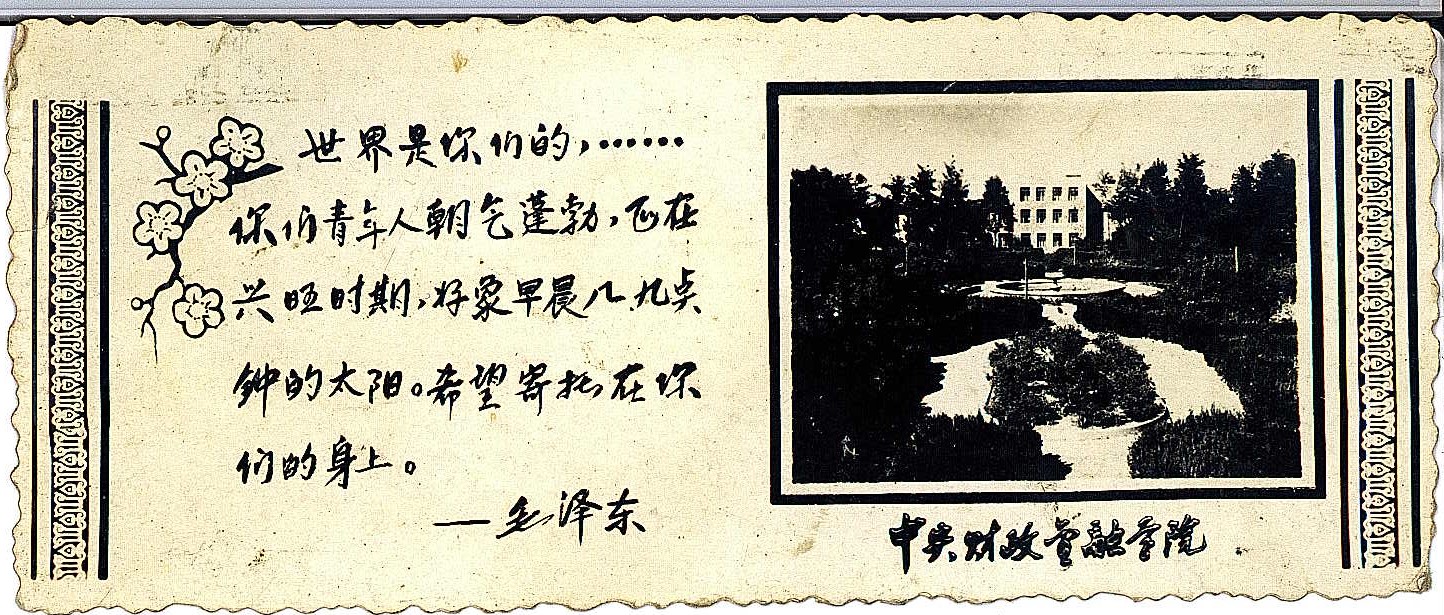 世界是你们的,……
你们青年人朝气蓬勃,正在
兴旺时期,好象早晨八、九点
钟的太阳。希望寄托在你
们的身上。
—毛泽东
中央财政金融学院